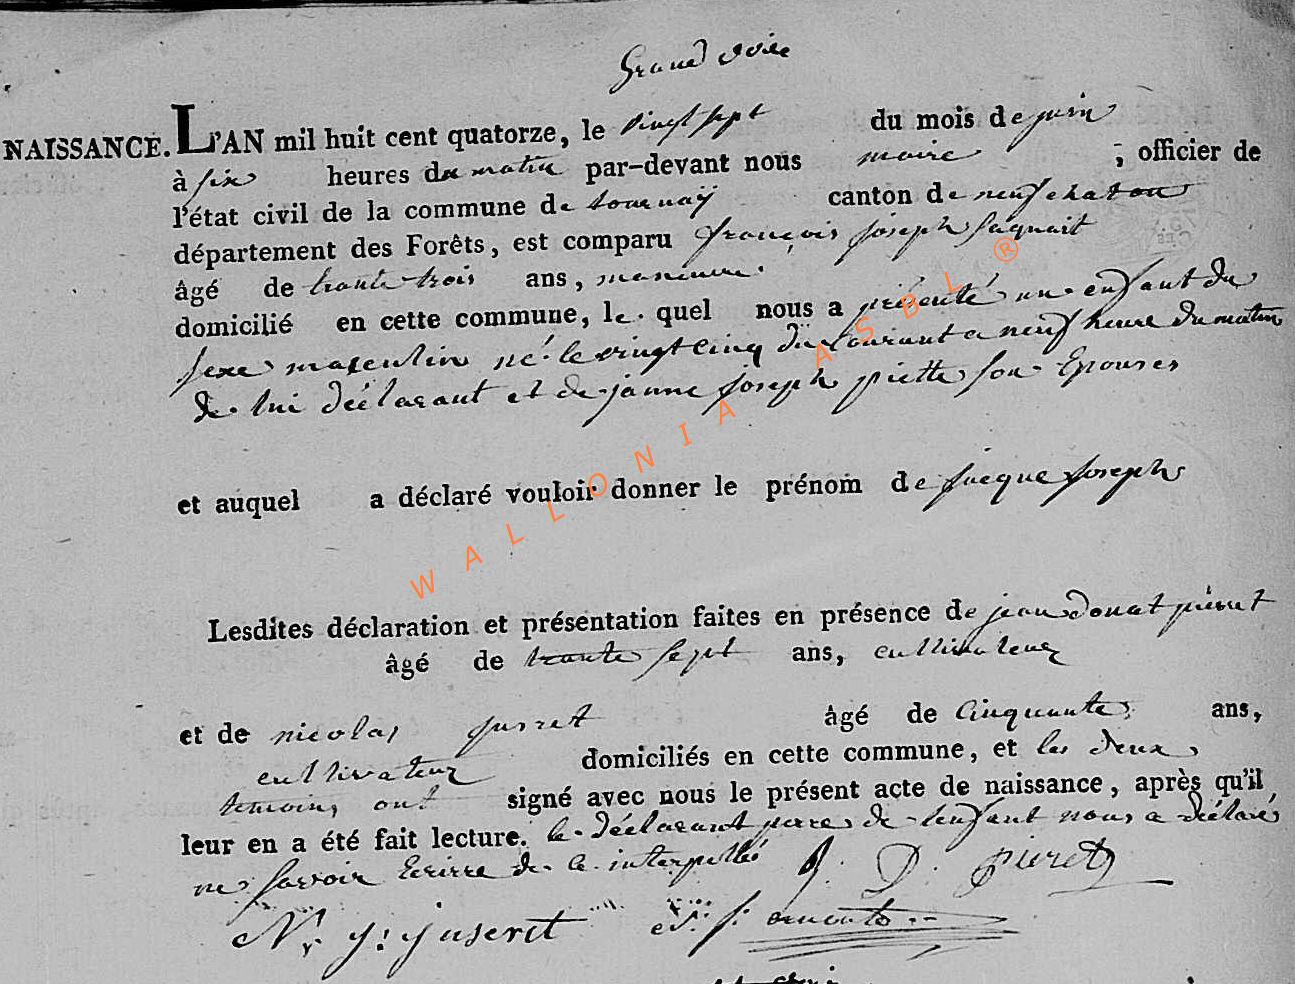 Grand voir
NAISSANCE. L'AN mil huit cent quatorze, le vingt sept du mois de juin
à six heures du matin par-devant nous maire ; officier de
l'état civil de la commune de tournaÿ canton de neufchateau
département des Forêts, est comparu françois joseph
âgé de trante trois ans, maneuvre.
domicilié en cette commune, le quel nous a présenté un enfant du
sexe masculin né le vingt cinq du courant a neuf heure du matin
de lui déclarant et de janne joseph piette son Epouses
et auquel a déclaré vouloir donner le prénom de jacque joseph
Lesdites déclaration et présentation faites en présence de jean donat pieret
âgé de trante sept ans, cultivateur
et de nicolas âgé de cinquante ans,
cultivateur domiciliés en cette commune, et les deux
temoins ont signé avec nous le présent acte de naissance, après qu'il
leur en a été fait lecture. le déclarant perre de lenfant nous a déclaré
ne savoir Ecrire de ce interpellé J. D. pieret
N. J: juseret
WALLONIA ASBL ®